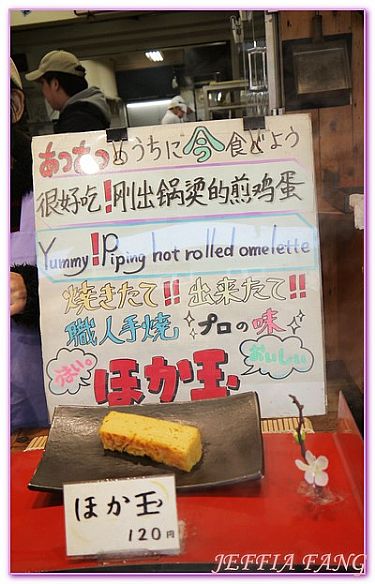 あつあつのうちに今食どよう
很好吃!刚出锅烫的煎鸡蛋
Yummy!Piping hot rolled omelette
焼きたて!! 出来たて!!
職人手焼 プロの味
うまい。 おいしい
ほか玉
ほか玉
120円
JEFFIA FANG